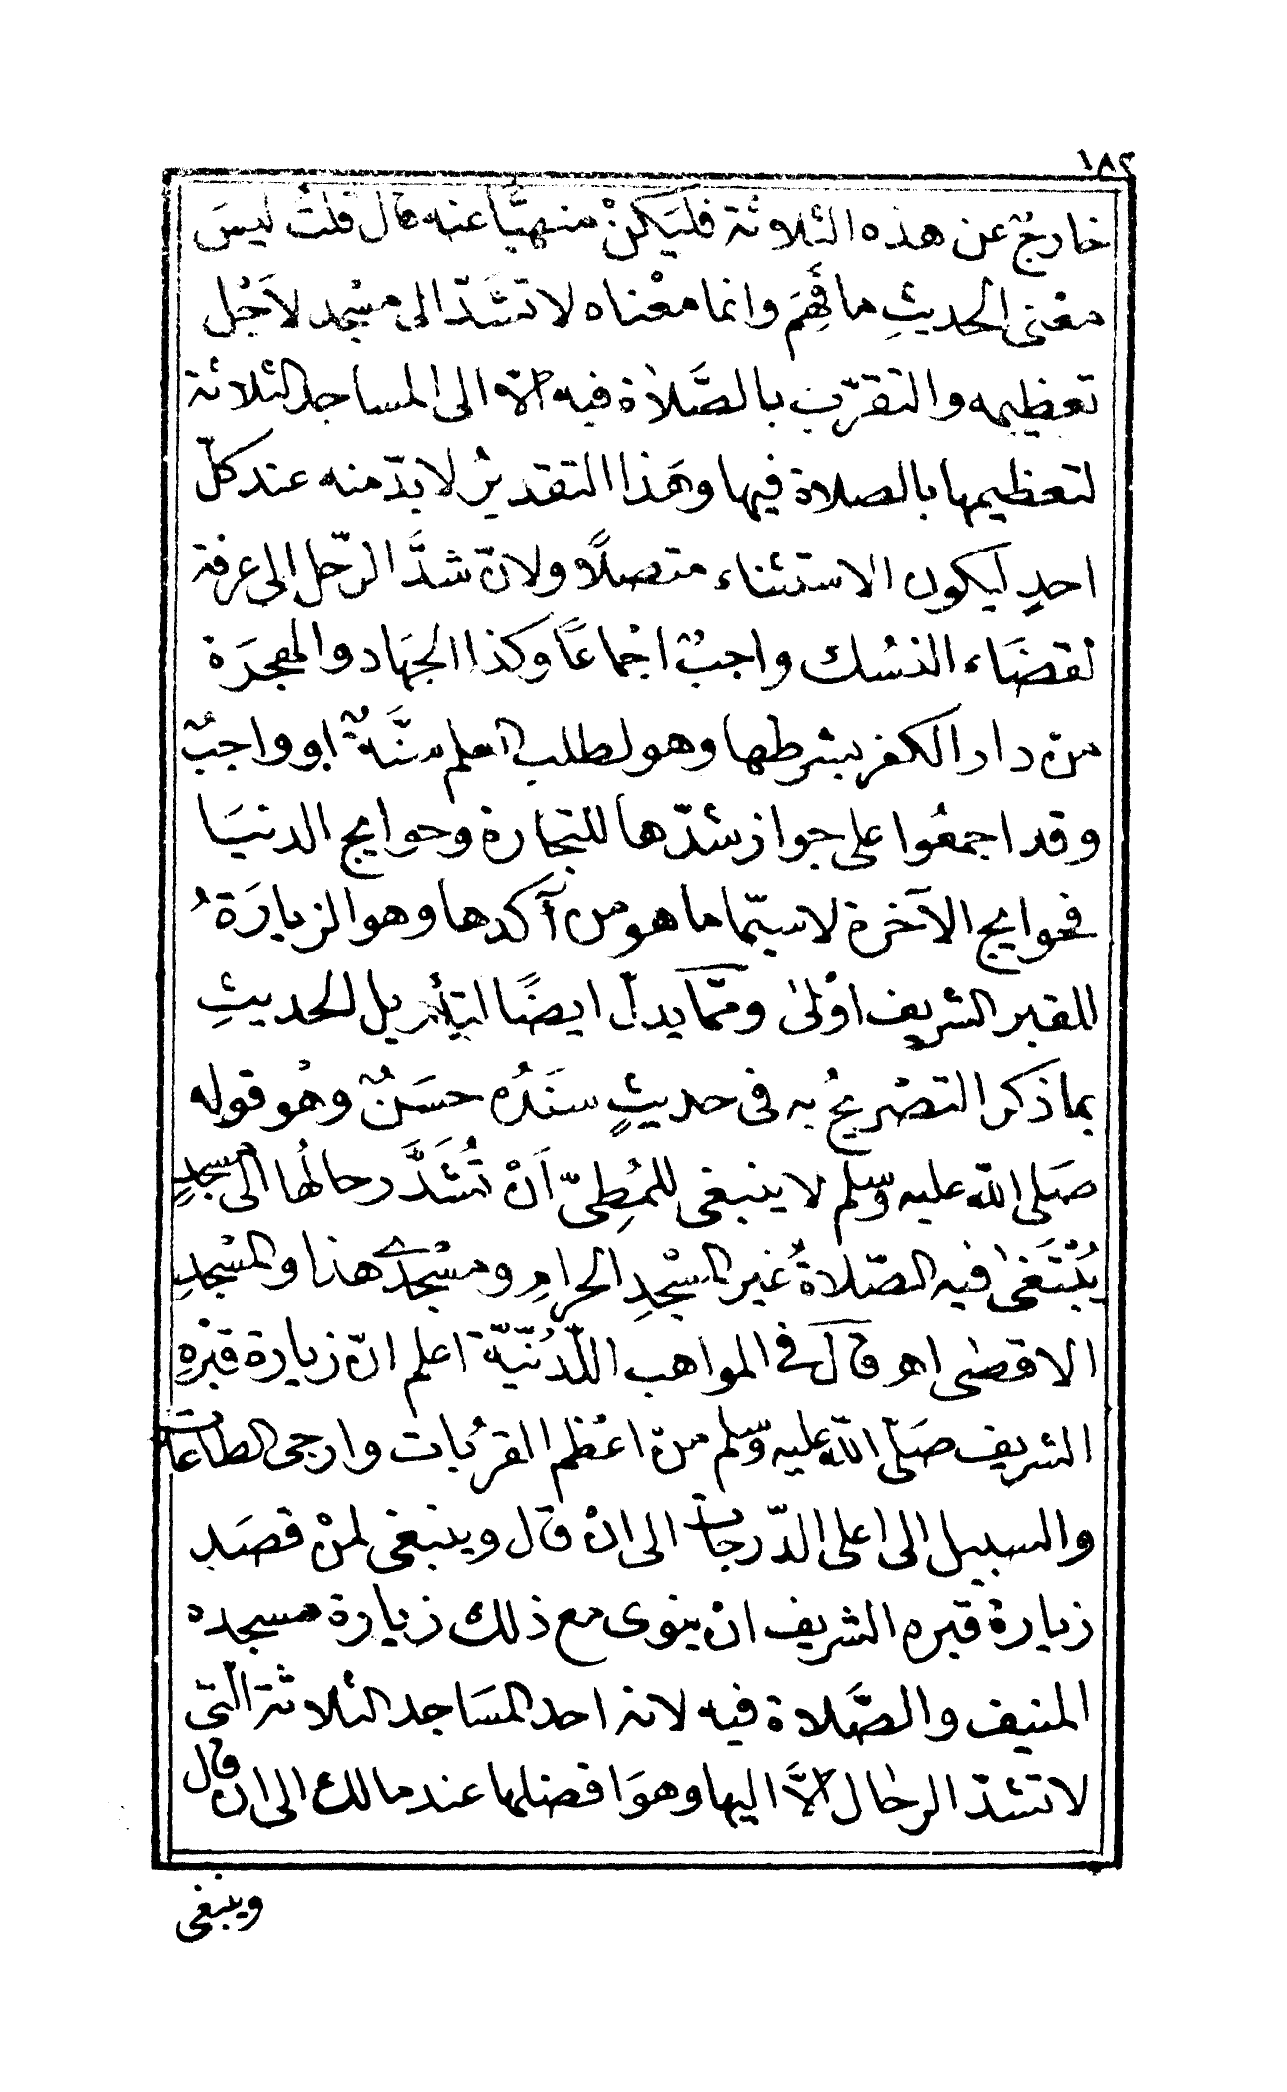 ١٨٢
خارجٌ عن هذه الثلاثة فليَكنْ منهيًّا عنه قال قلتُ ليسَ
معْنى الحديثِ ما فَهِمَ وانما معْناه لا تشَدّ الى مسْجد لاَجْل
تعظيمه والتقرّب بالصَّلاة فيه الّا الى المساجد الثلاثة
لتعظيمها بالصلاة فيها وهَذا التقديرُ لا بدّ منه عند كلّ
احدٍ ليكون الاستثناء متصلًا ولانّ شدَّ الرّحل الى عرفة
لقضَاء النسُك واجبٌ اجْماعًا وكذا الجهَاد والهجرَة
من دار الكفر بشرطها وهو لطلب العلم سنَّةٌ او واجبٌ
وقد اجمعُوا على جواز شدّها للتجارة وحوايج الدنيَا
فحوايج الآخرة لاسيّما ما هو من آكدها وهو الزيارَةُ
للقبر الشريف اوْلىٰ وممّا يدلّ ايضًا لتأويل الحديثِ
بما ذكر التصْريحُ به فى حديثٍ سنَدُه حسَنٌ وهُو قوله
صَلى الله عليه وسلم لا ينبغى للمُطِىّ اَنْ تُشَدَّ رحالُها الى مسجدٍ
يُبْتَغىٰ فيه الصّلاةُ غير المسْجدِ الحرامِ ومسْجدى هذا والمسْجدِ
الاقصٰى اهـ وقالَ فى المواهب اللّدُنّيّة اعلم انّ زيارة قبْرِهِ
الشريف صَلّى الله عليه وسلم من اعْظم القرُبات وارجى الطاعات
والسبيل الى اعلى الدّرجات الى انْ قال وينبغى لمنْ قصَد
زيارة قبره الشريف انْ ينوى مع ذلك زيارة مسجده
المنيف والصَّلاة فيه لانه احد المسَاجد الثلاثة التى
لا تشدّ الرحال الاَّ اليها وهوَ افضلها عند مالك الى ان قال
وينبغى